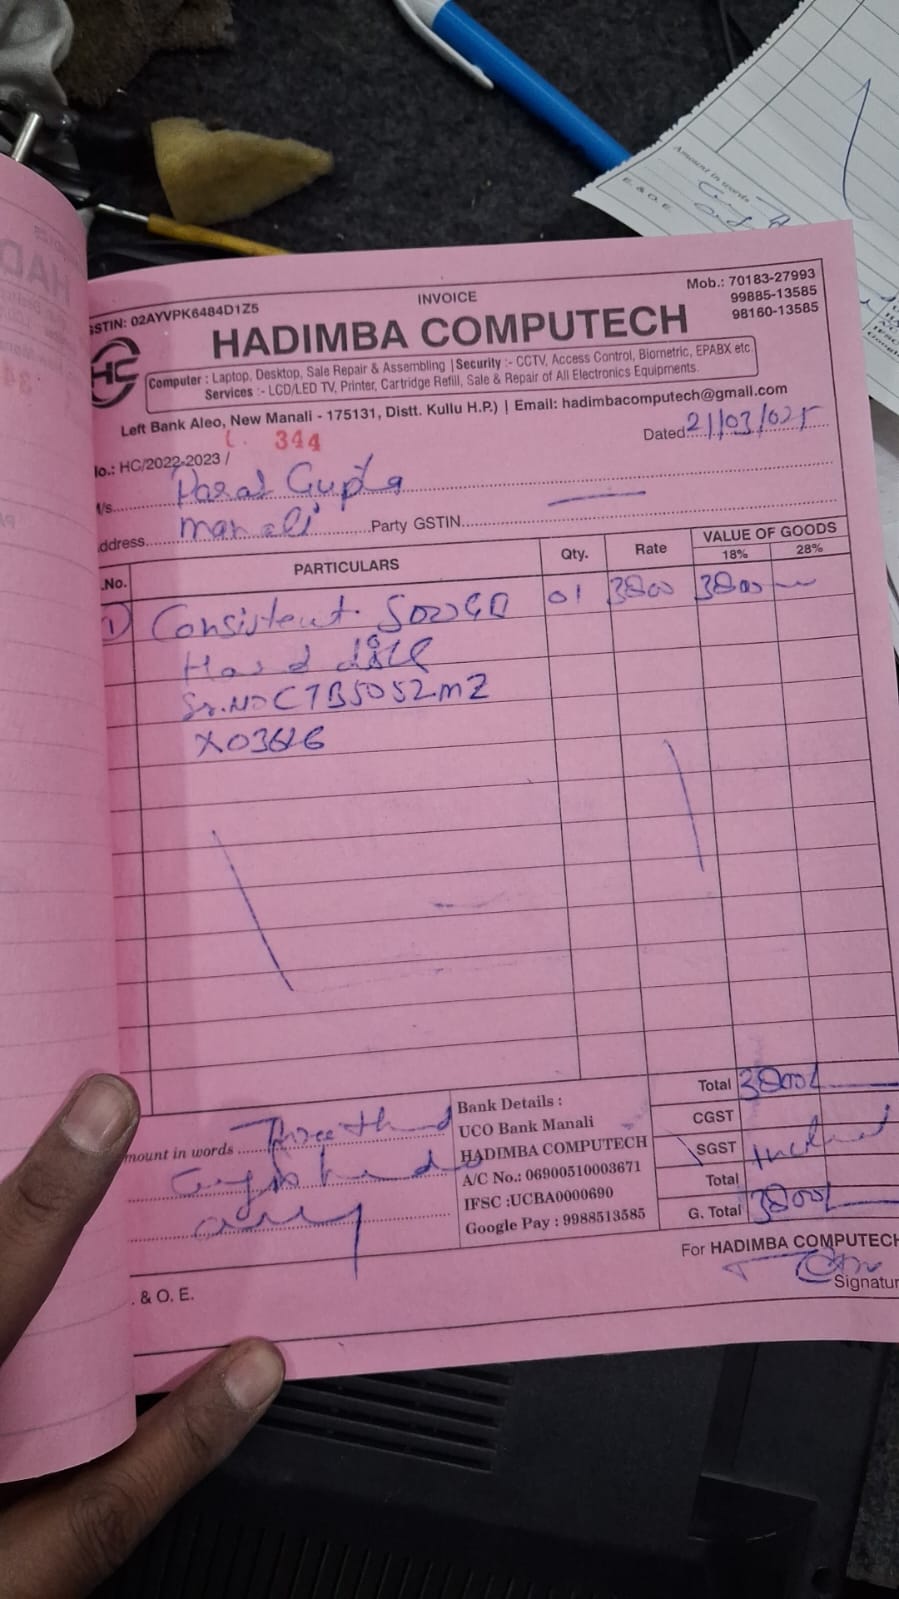 INVOICE
GSTIN: 02AYVPK6484D1Z5
Mob.: 70183-27993
99885-13585
98160-13585
HC
HADIMBA COMPUTECH
Computer : Laptop, Desktop, Sale Repair & Assembling | Security :- CCTV, Access Control, Biometric, EPABX etc.
Services :- LCD/LED TV, Printer, Cartridge Refill, Sale & Repair of All Electronics Equipments.
Left Bank Aleo, New Manali - 175131, Distt. Kullu H.P.) | Email: hadimbacomputech@gmail.com
lo.: HC/2022-2023 / 344
Dated 21/03/025
/s. Gupta
ddress manali Party GSTIN
.No. PARTICULARS Qty. Rate VALUE OF GOODS
18% 28%
1) Consistent 500GB 01 3800 3800
Hard disk
Sr.NO C7B5052MZ
X03616
Total 3800/
CGST
SGST Included
Total
G. Total 3800/
mount in words Three
only
Bank Details :
UCO Bank Manali
HADIMBA COMPUTECH
A/C No.: 06900510003671
IFSC :UCBA0000690
Google Pay : 9988513585
For HADIMBA COMPUTECH
Signatur
. & O. E.
Amount in words
E. & O. E.